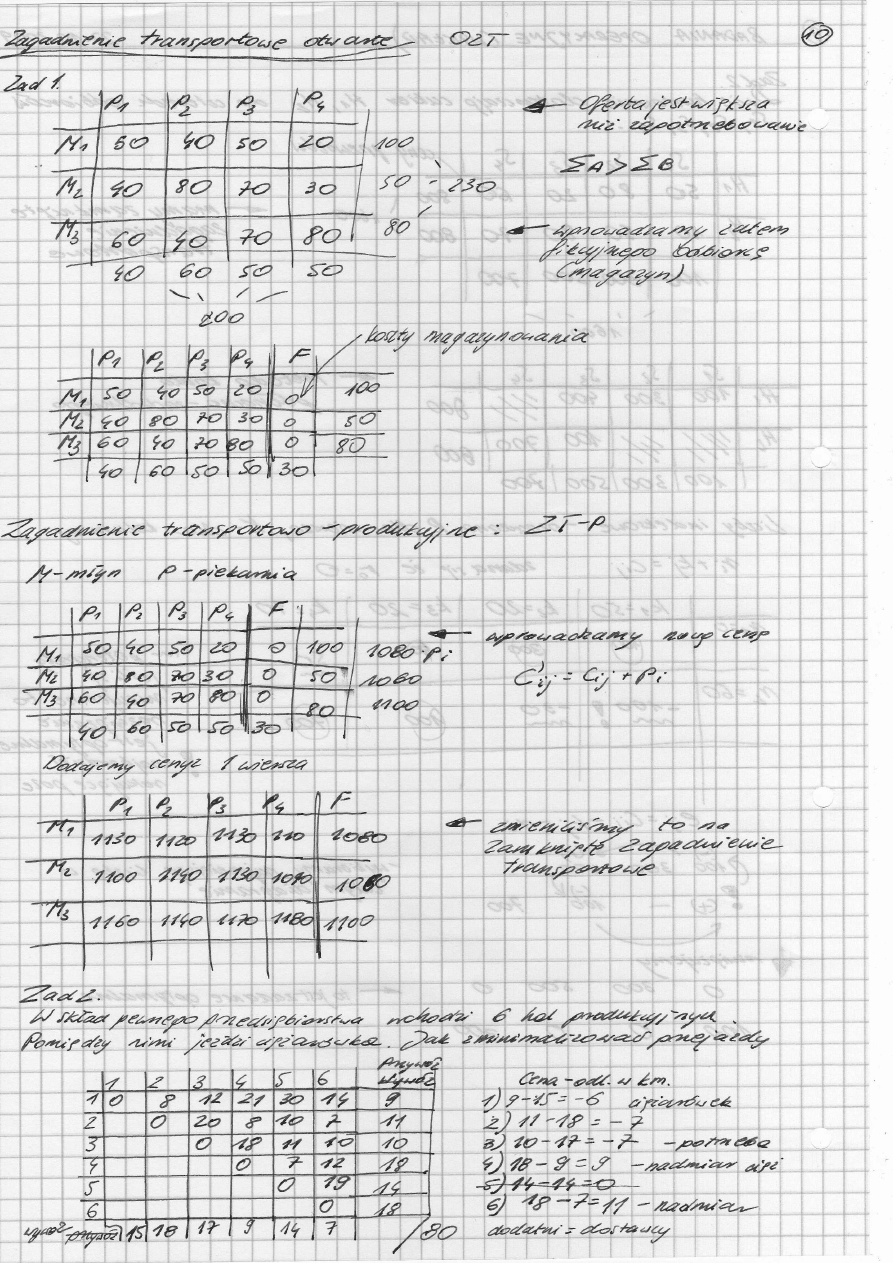 Zagadnienie transportowe otwarte OZT 10
Zad 1.
P1 P2 P3 P4
M1 50 40 50 20 100
M2 40 80 70 30 50 230
M3 60 40 70 80 80
40 60 50 50
200
← Oferta jest większa
niż zapotrzebowanie
ΣA > ΣB
← wprowadzamy zatem
fikcyjnego odbiorcę
(magazyn)
koszty magazynowania
P1 P2 P3 P4 F
M1 50 40 50 20 0 100
M2 40 80 70 30 0 50
M3 60 40 70 80 0 80
40 60 50 50 30
Zagadnienie transportowo - produkcyjne : ZT-P
M-młyn P-piekarnia
P1 P2 P3 P4 F
M1 50 40 50 20 0 100 1080 · pi
M2 40 80 70 30 0 50 1060
M3 60 40 70 80 0 80 1100
40 60 50 50 30
← wprowadzamy nową cenę
C'ij = Cij + Pi
Dodajemy cenę z 1 wiersza
P1 P2 P3 P4 F
M1 1130 1120 1130 1080
M2 1100 1140 1130 1090
M3 1160 1140 1170 1180 1100
← zmieniliśmy to na
zamknięte zagadnienie
transportowe
Zad 2.
W skład pewnego przedsiębiorstwa wchodzi 6 hal produkcyjnych.
Pomiędzy nimi jeździ ciężarówka. Jak zminimalizować przejazdy
1 2 3 4 5 6 Przywóz
1 0 8 12 21 30 14 9
2 0 20 8 10 7 11
3 0 18 11 10 10
4 0 7 12 18
5 0 19 14
6 0 18
wywóz 15 18 17 9 14 7 /80
Cena - odl. w km.
1) 9-15 = -6 ciężarówek
2) 11-18 = -7
3) 10-17 = -7 - potrzeba
4) 18-9 = 9 - nadmiar cięż
5) 14-14 = 0
6) 18-7 = 11 - nadmiar
dodatni = dostawcy